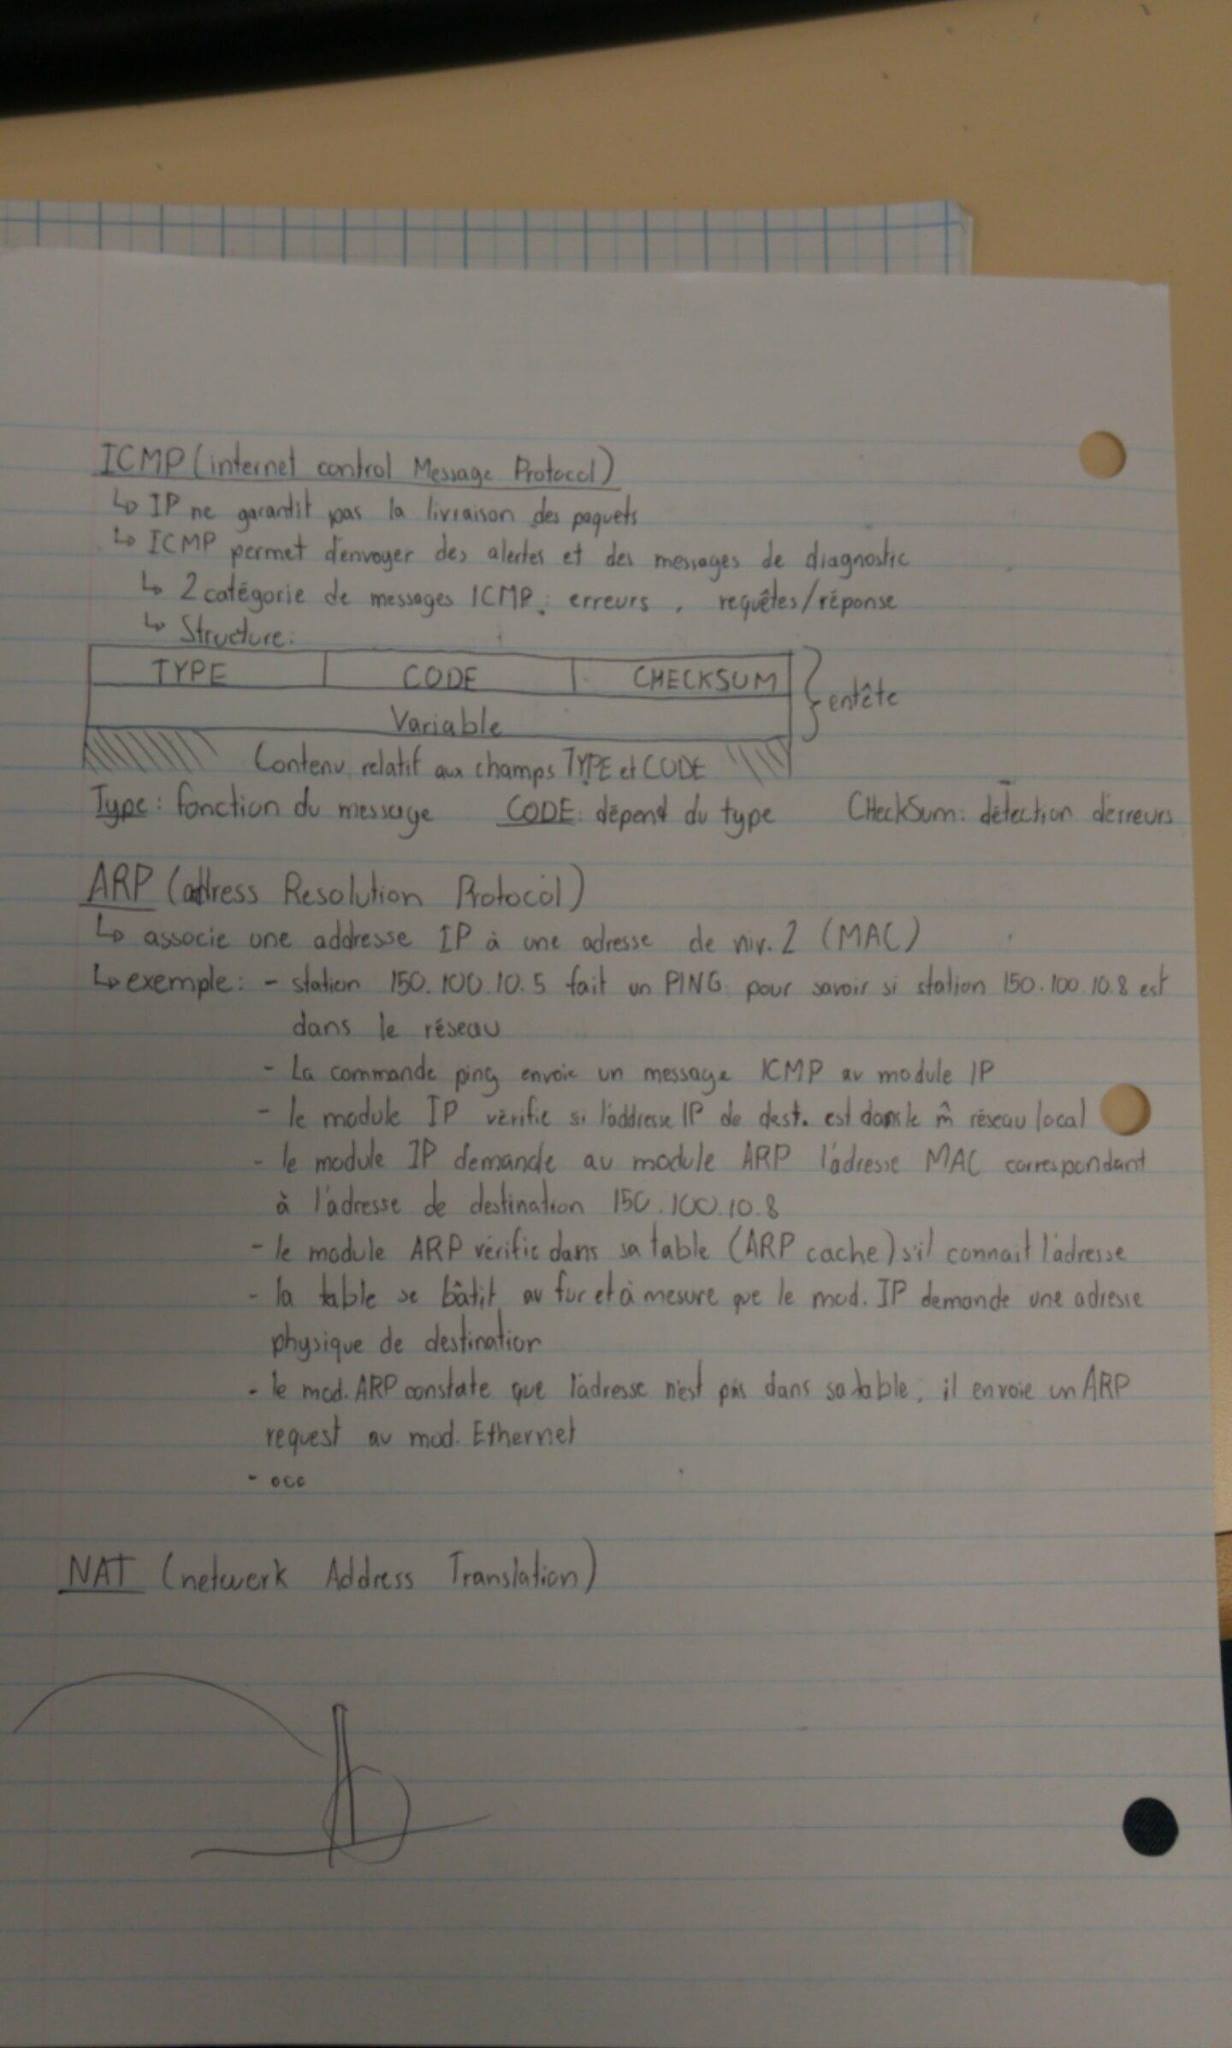 ICMP (internet control Message Protocol)
↳ IP ne garantit pas la livraison des paquets
↳ ICMP permet d'envoyer des alertes et des messages de diagnostic
↳ 2 catégorie de messages ICMP : erreurs, requêtes/réponse
↳ Structure:
TYPE CODE CHECKSUM
entête
Variable
Contenu relatif aux champs TYPE et CODE
Type: fonction du message CODE: dépend du type CHeckSum: détection d'erreurs
ARP (address Resolution Protocol)
↳ associe une addresse IP à une adresse de niv. 2 (MAC)
↳ exemple: - station 150.100.10.5 fait un PING pour savoir si station 150.100.10.8 est
dans le réseau
- La commande ping envoie un message ICMP au module IP
- le module IP vérifie si l'addresse IP de dest. est dans le m̂ réseau local
- le module IP demande au module ARP l'adresse MAC correspondant
à l'adresse de destination 150.100.10.8
- le module ARP vérifie dans sa table (ARP cache) s'il connait l'adresse
- la table se bâtit au fur et à mesure que le mod. IP demande une adresse
physique de destination
- le mod. ARP constate que l'adresse n'est pas dans sa table, il envoie un ARP
request au mod. Ethernet
- ...
NAT (network Address Translation)